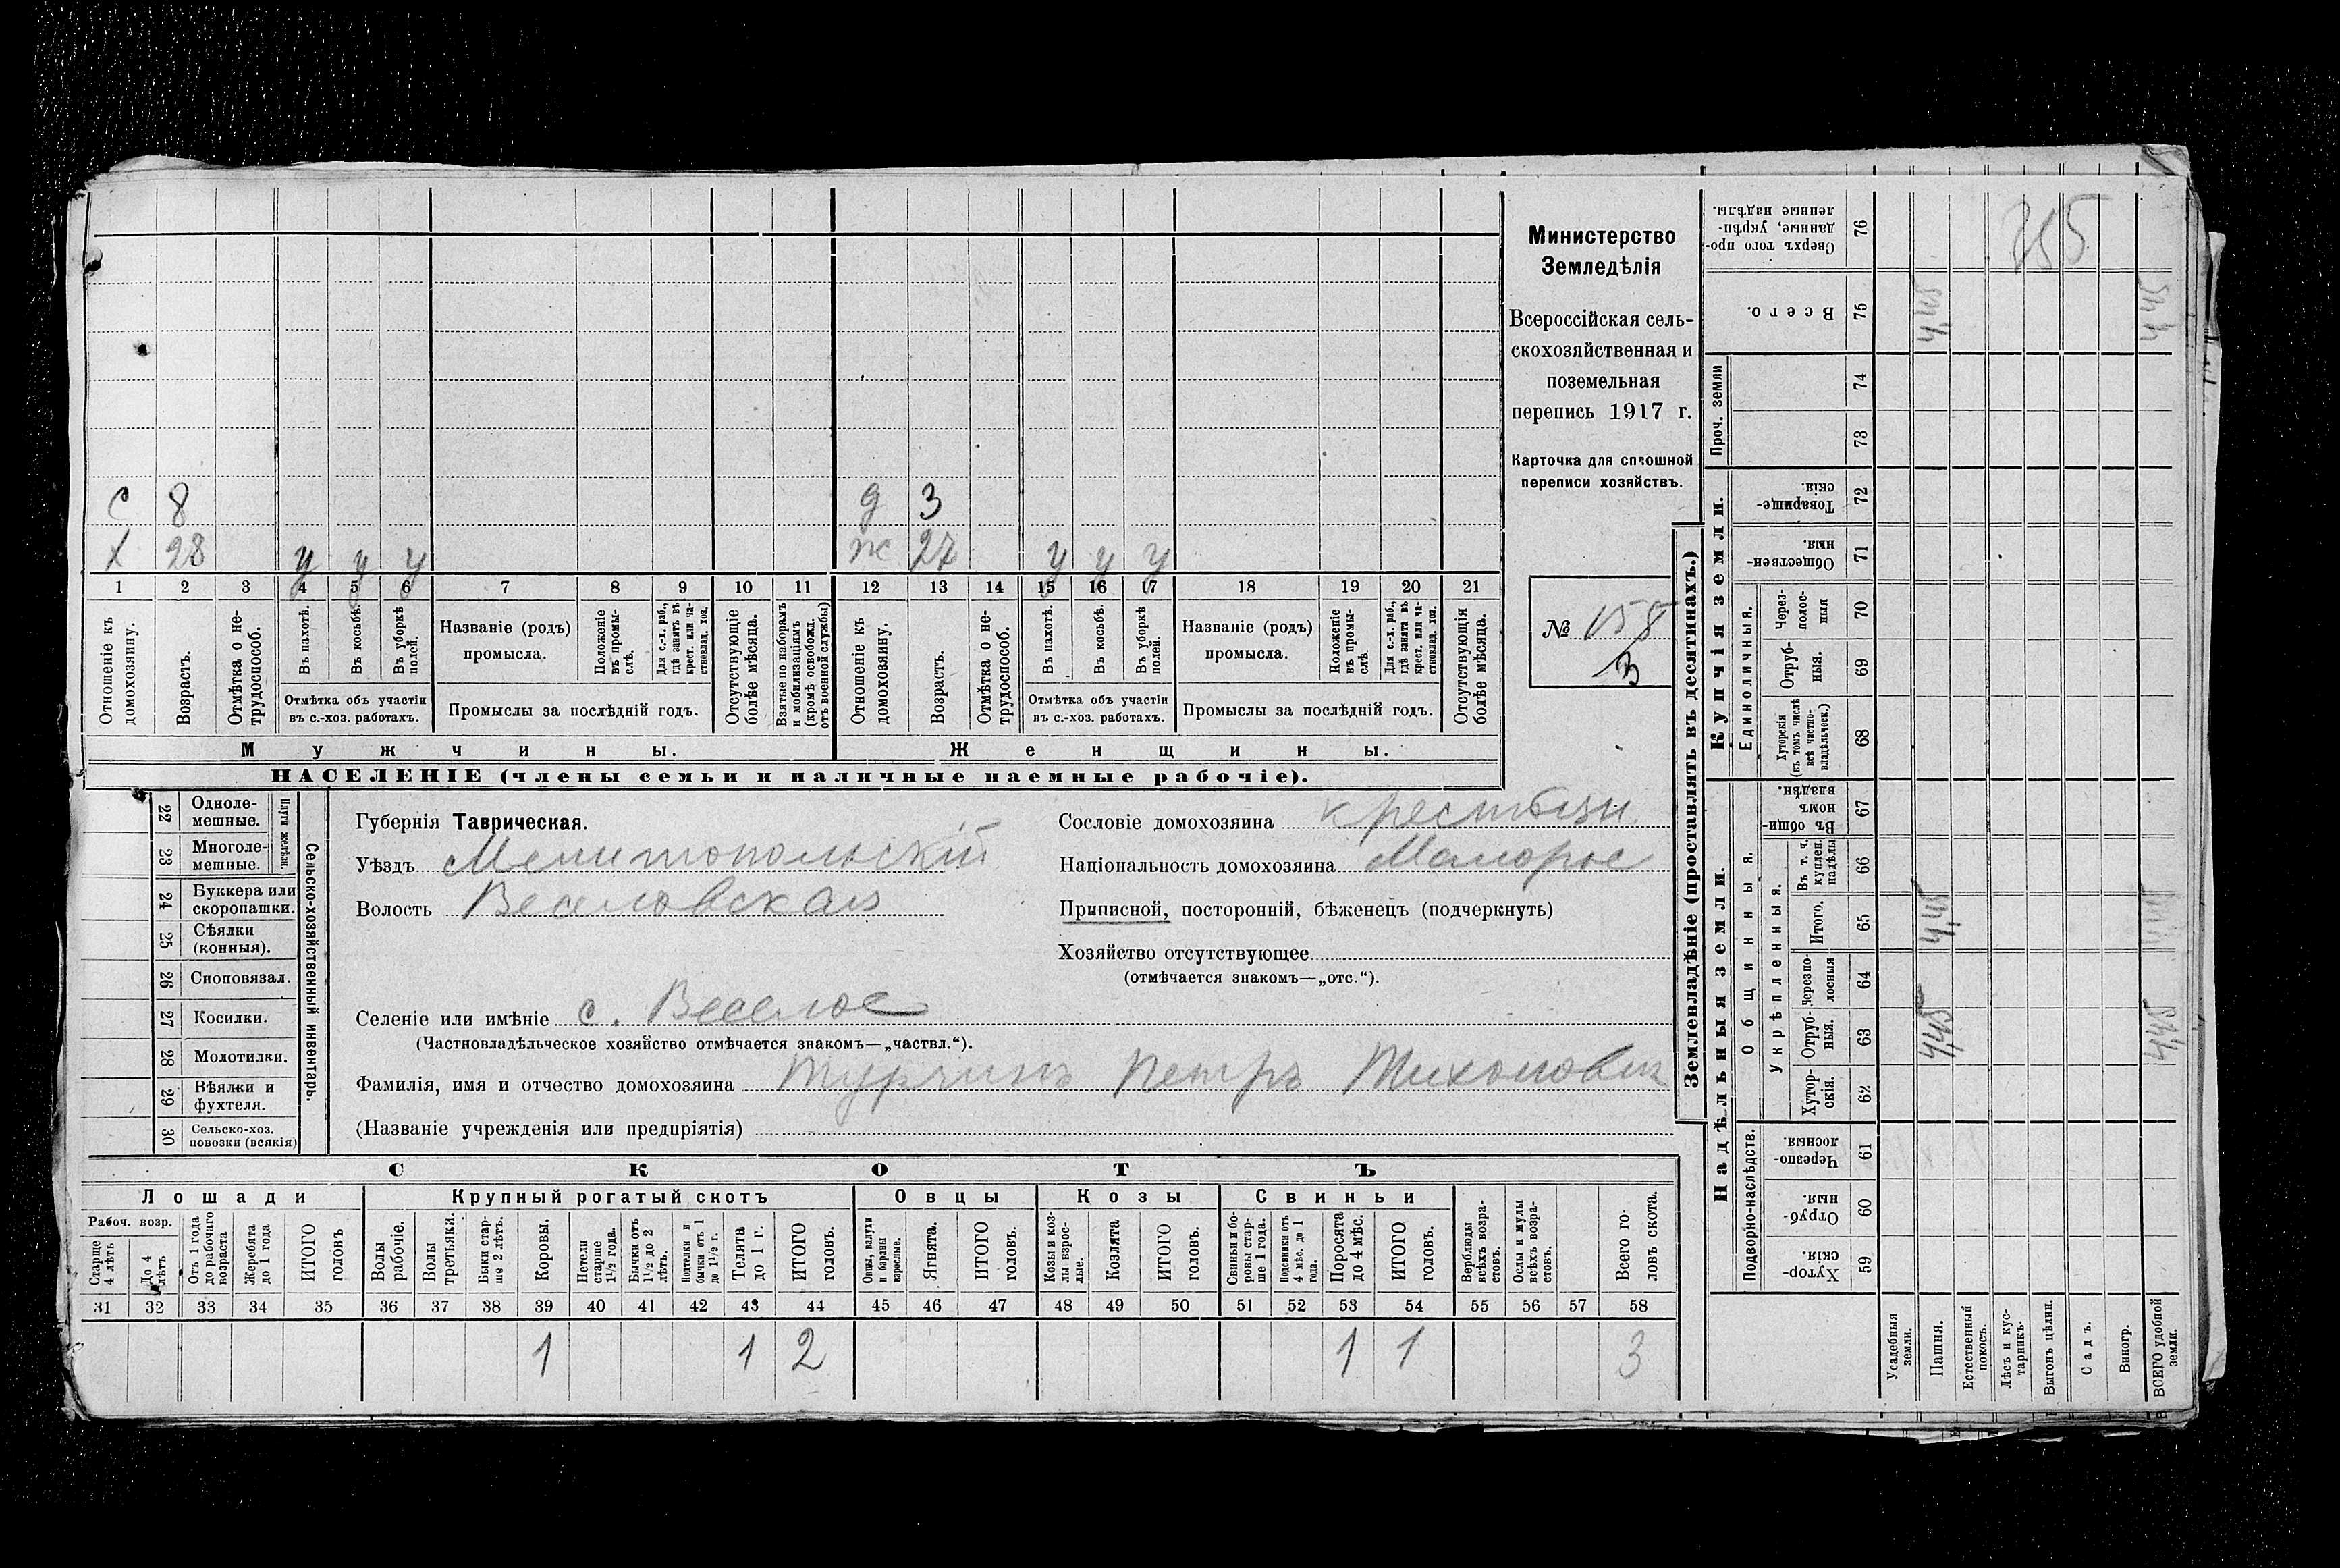 Министерство
Земледѣлія
Всероссійская сель-
скохозяйственная и
поземельная
перепись 1917 г.
Карточка для сплошной
переписи хозяйствъ.
№ 158
3
с 8 д 3
х 28 у у у ж 27 у у у
1 2 3 4 5 6 7 8 9 10 11 12 13 14 15 16 17 18 19 20 21
Отношеніе къ домохозяину.
Возрастъ.
Отмѣтка о не-трудоспособ.
Въ пахотѣ.
Въ косьбѣ.
Въ уборкѣ полей.
Отмѣтка объ участіи
въ с.-хоз. работахъ.
Названіе (родъ)
промысла.
Положеніе въ промы-слѣ.
Для с.-х. раб., гдѣ занятъ въ крест. или ча-стновлад. хоз.
Промыслы за послѣдній годъ.
Отсутствующіе болѣе мѣсяца.
Взятые по наборамъ и мобилизаціямъ (кромѣ освобожд. отъ военной службы)
Отношеніе къ домохозяину.
Возрастъ.
Отмѣтка о не-трудоспособ.
Въ пахотѣ.
Въ косьбѣ.
Въ уборкѣ полей.
Отмѣтка объ участіи
въ с.-хоз. работахъ.
Названіе (родъ)
промысла.
Положеніе въ промы-слѣ.
Для с.-х. раб., гдѣ занята въ крест. или ча-стновлад. хоз.
Промыслы за послѣдній годъ.
Отсутствующія болѣе мѣсяца.
Мужчины. Женщины.
НАСЕЛЕНІЕ (члены семьи и наличные наемные рабочіе).
Сельско-хозяйственный инвентарь.
Плуги желѣзн.
22 Одноле-мешные.
23 Многоле-мешные.
24 Буккера или скоропашки.
25 Сѣялки (конныя).
26 Сноповязал.
27 Косилки.
28 Молотилки.
29 Вѣялки и фухтеля.
30 Сельско-хоз. повозки (всякія)
Губернія Таврическая.
Уѣздъ Мелитопольскій
Волость Веселовская
Сословіе домохозяина крестьян.
Національность домохозяина Малорос
Приписной, посторонній, бѣженецъ (подчеркнуть)
Хозяйство отсутствующее
(отмѣчается знакомъ—„отс.“).
Селеніе или имѣніе с. Веселое
(Частновладѣльческое хозяйство отмѣчается знакомъ—„частвл.“).
Фамилія, имя и отчество домохозяина Турчинъ Петръ
(Названіе учрежденія или предпріятія)
СКОТЪ
Лошади Крупный рогатый скотъ Овцы Козы Свиньи
Рабоч. возр.
Старше 4 лѣтъ
До 4 лѣтъ
Отъ 1 года до рабочаго возраста
Жеребята до 1 года
ИТОГО головъ
Волы рабочіе.
Волы третьяки.
Быки стар-ше 2 лѣтъ.
Коровы.
Нетели старше 1½ года.
Бычки отъ 1½ до 2 лѣтъ.
Подтелки и бычки отъ 1 до 1½ г.
Телята до 1 г.
ИТОГО головъ.
Овцы, валухи и бараны взрослые.
Ягнята.
ИТОГО головъ.
Козы и коз-лы взрос-лые.
Козлята
ИТОГО головъ.
Свиньи и бо-ровы стар-ше 1 года.
Подсвинки отъ 4 мѣс. до 1 года.
Поросята до 4 мѣс.
ИТОГО головъ.
Верблюды всѣхъ возра-стовъ.
Ослы и мулы всѣхъ возра-стовъ.
Всего го-ловъ скота.
31 32 33 34 35 36 37 38 39 40 41 42 43 44 45 46 47 48 49 50 51 52 53 54 55 56 57 58
1 1 2 1 1 3
Землевладѣніе (проставлять въ десятинахъ.)
Надѣльныя земли. Купчія земли.
Подворно-наслѣдств.
Общинныя.
Укрѣпленныя.
Единоличныя.
Проч. земли
Хутор-скія. 59
Отруб-ныя. 60
Черезпо-лосныя. 61
Хутор-скія. 62
Отруб-ныя. 63
Черезпо-лосныя 64
Итого. 65
Въ т. ч. куплен. надѣлы 66
Въ общи-номъ владѣн. 67
Хуторскія (въ томъ числѣ всѣ частно-владѣльческ.) 68
Отруб-ныя. 69
Через-полос-ныя 70
Обществен-ныя. 71
Товарище-скія. 72
73
74
Всего. 75
Сверхъ того про-данные, укрѣп-ленные надѣлы. 76
Усадебныя земли.
Пашня. 4,45 4,45 4,45
Естественный покосъ.
Лѣсъ и кус-тарникъ.
Выгонъ цѣлин.
Садъ.
Виногр.
ВСЕГО удобной земли. 4,45 4,45 4,45